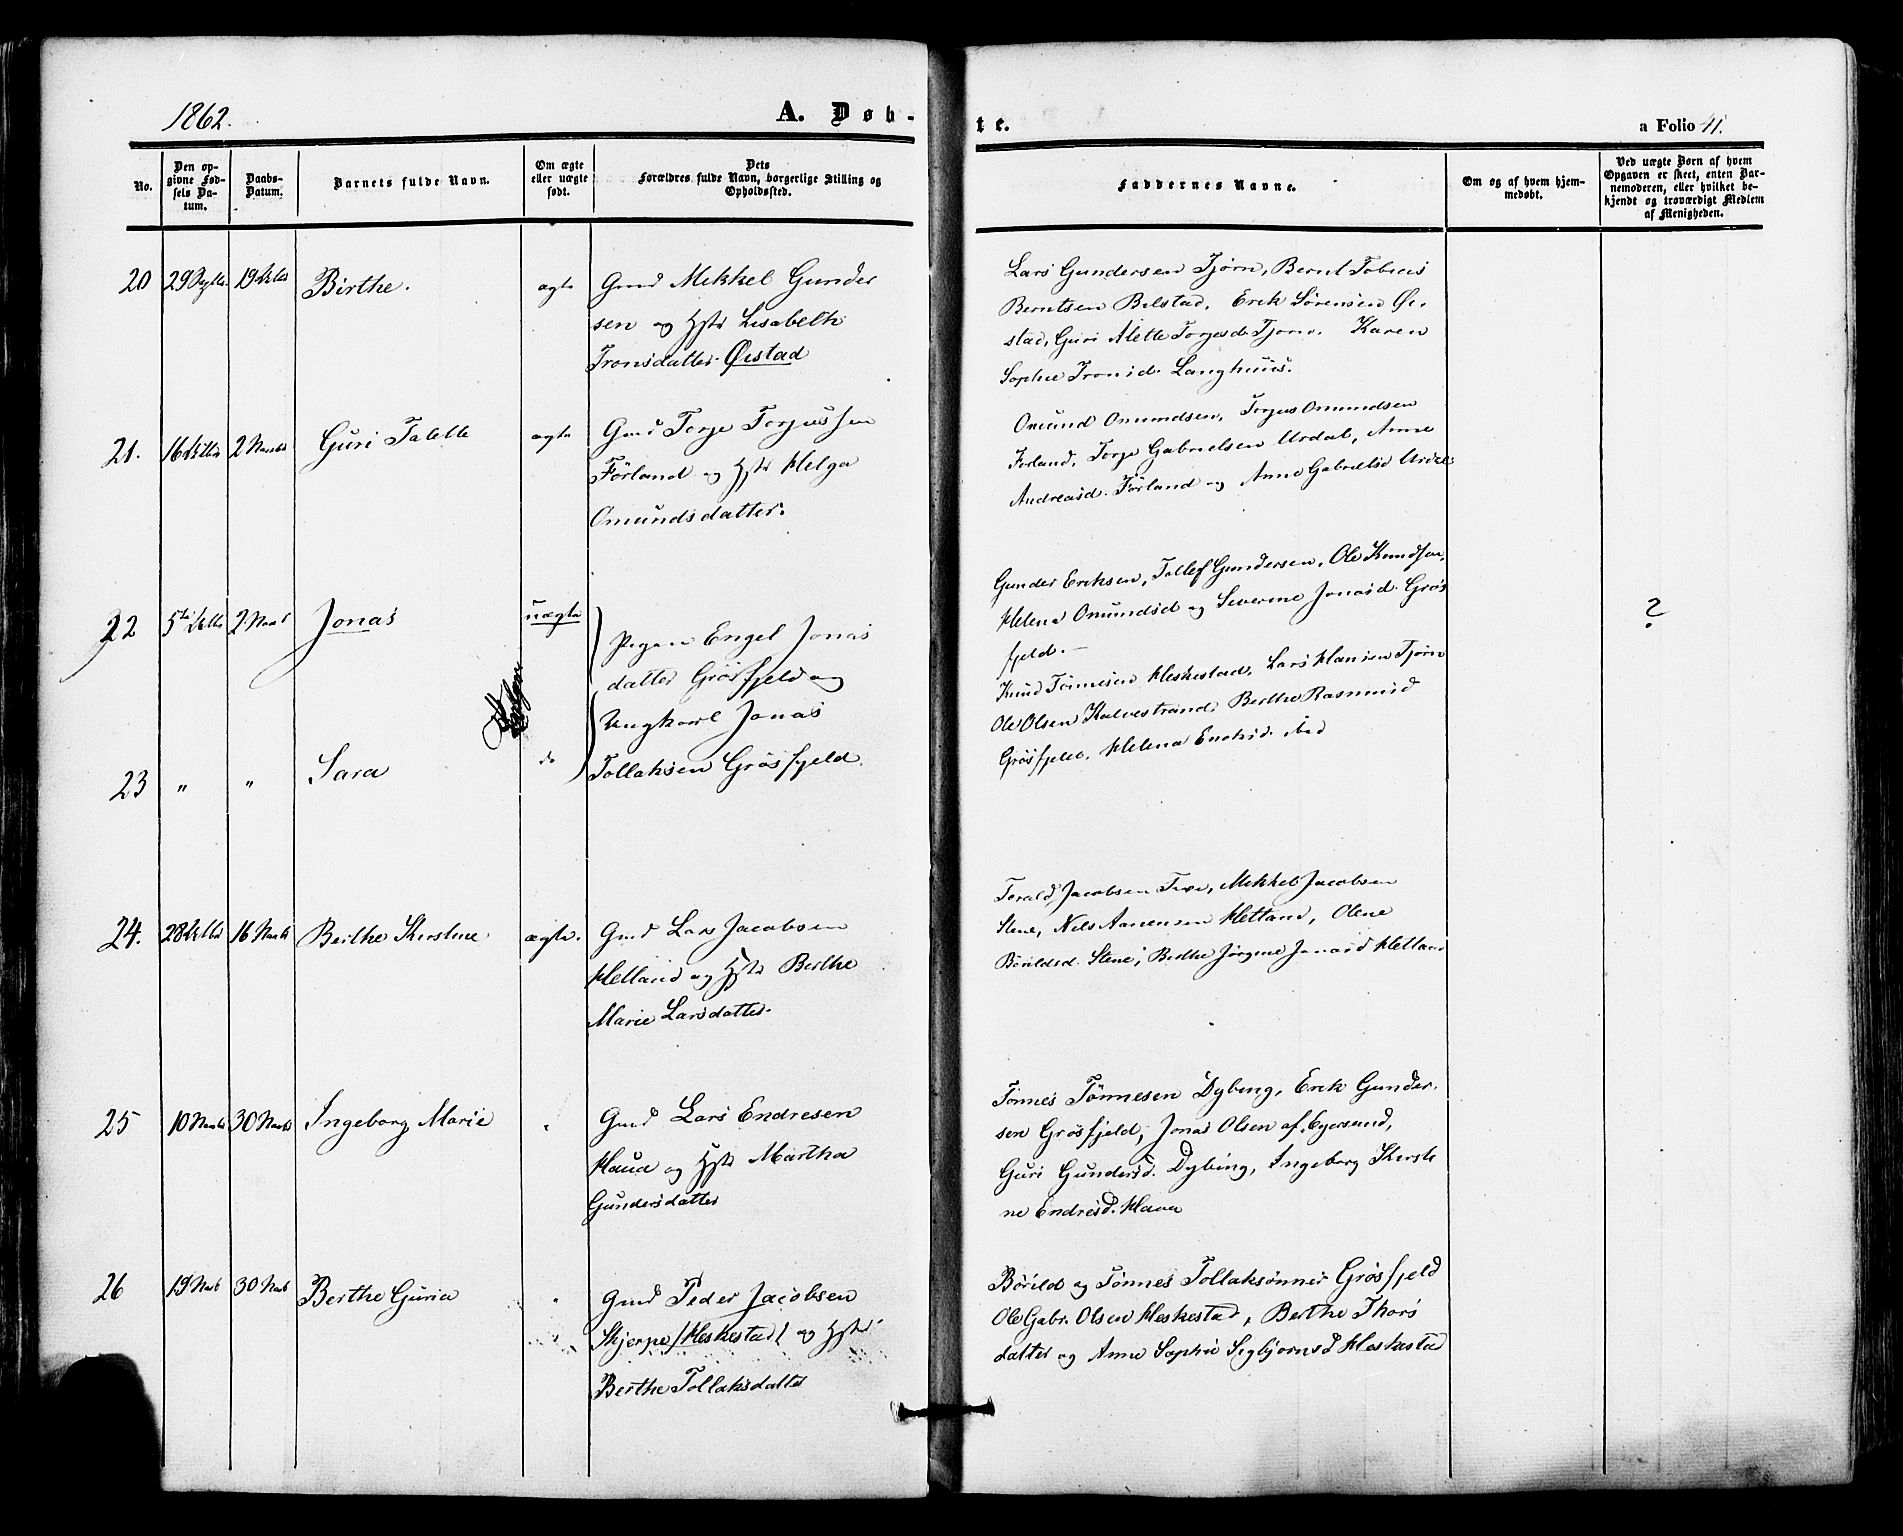 1862.
A. Døb-
te.
a Folio 41.
No.
Den op-
givne Fød-
sels Da-
tum.
Daabs-
Datum.
Barnets fulde Navn.
Om ægte
eller uægte
født.
Dets
Forældres fulde Navn, borgerlige Stilling og
Opholdssted.
Faddernes Navne.
Om og af hvem hjem-
medøbt.
Ved uægte Børn af hvem
Opgaven er skeet, enten Bar-
nemoderen, eller hvilket be-
kjendt og troværdigt Medlem
af Menigheden.
20
29
19
Birthe.
ægte
Gmd Mikkel Gunder
sen og Hstr Lisabeth
Tronsdatter Øistad
Lars Gundersen Tjørn, Bernt Tobias
Berntsen Bilstad, Erik Sørensen Øi-
stad, Guri Alette Torgesd. Tjørn. Karen
Sophie Tronsd. Langhuus.
21.
16
2 Novbr
Guri Talette
ægte
Gmd Torge Torgussen
Förland og Hstr Helga
Omundsdatter.
Omund Omundsen, Torgus Omundsen
Förland, Torge Gabrielsen Urdal, Anne
Andreasd. Förland og Anne Gabrielsd Urdal
22
5te
2 Nov
Jonas
uægte
Pigen Engel Jonas
datter Grösfjeld og
Ungkarl Jonas
Tollaksen Grösfjeld.
Gunder Eriksen, Tollef Gundersen, Ole Knudsen,
Helena Omundsd og Severine Jonasd. Grös
fjeld. —
?
23
"
"
Sara
do
Knud Tönnesen Heskestad, Lars Hansen Tjörn
Ole Olsen Kalvestrand, Berthe Rasmusd
Grösfjeld, Helena Endresd. ibid
24.
28
16 Novb
Berthe Kirstine
ægte.
Gmd Lars Jacobsen
Hetland og Hstr Berthe
Marie Larsdatter.
Torald Jacobsen, Mikkel Jacobsen
Stene, Nils Aanensen Hetland, Olene
Börildsd. Stene, Berthe Jörgine Jonasd Hetland
25
10 Novb
30 Novb
Ingeborg Marie
"
Gmd Lars Endresen
Haua og Hstr Martha
Gundersdatter
Tönnes Tönnesen Dybing, Erik Gunder-
sen Grösfjeld, Jonas Olsen af Egersund,
Guri Gundersd. Dybing, Ingeborg Kirsti
ne Endresd. Haua
26
19 Novb
30 Novb
Berthe Guria
"
Gmd Peder Jacobsen
Skjerpe /Heskestad/ og Hstr
Berthe Tollaksdatter
Börild og Tönnes Tollaksönner Grösfjeld
Ole Gabr. Olsen Heskestad, Berthe Thors
datter og Anne Sophie Sigbjörnsd Heskestad